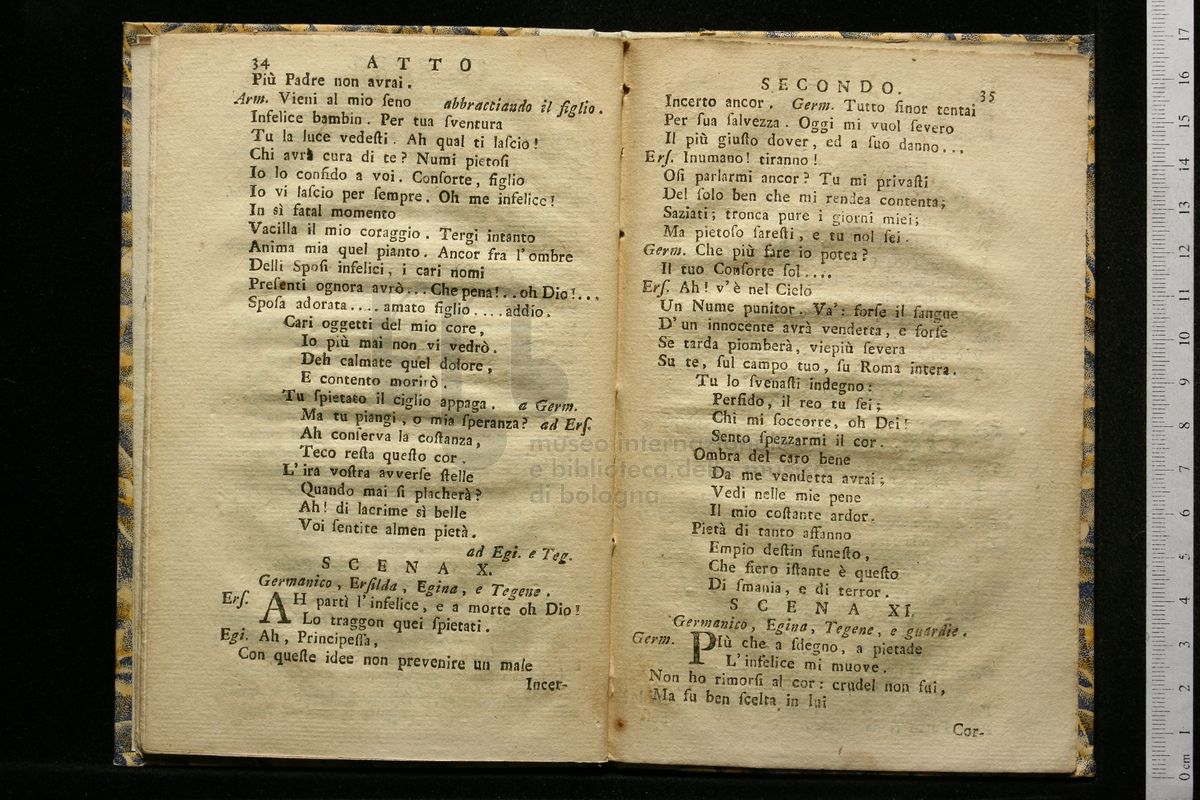 34 ATTO
Più Padre non avrai.
Arm. Vieni al mio ſeno abbracciando il figlio.
Infelice bambin. Per tua ſventura
Tu la luce vedeſti. Ah qual ti laſcio!
Chi avrà cura di te? Numi pietoſi
Io lo confido a voi. Conſorte, figlio
Io vi laſcio per ſempre. Oh me infelice!
In sì fatal momento
Vacilla il mio coraggio. Tergi intanto
Anima mia quel pianto. Ancor fra l'ombre
Delli Spoſi infelici, i cari nomi
Preſenti ognora avrò... Che pena!.. oh Dio!...
Spoſa adorata.... amato figlio.... addio.
Cari oggetti del mio core,
Io più mai non vi vedrò.
Deh calmate quel dolore,
E contento morirò.
Tu ſpietato il ciglio appaga. a Germ.
Ma tu piangi, o mia ſperanza? ad Erſ.
Ah conſerva la coſtanza,
Teco reſta queſto cor.
L'ira voſtra avverſe ſtelle
Quando mai ſi placherà?
Ah! di lacrime sì belle
Voi ſentite almen pietà.
ad Egi. e Teg.
SCENA X.
Germanico, Erſilda, Egina, e Tegene.
Erſ. AH partì l'infelice, e a morte oh Dio!
Lo traggon quei ſpietati.
Egi. Ah, Principeſſa,
Con queſte idee non prevenire un male
Incer-
SECONDO. 35
Incerto ancor. Germ. Tutto ſinor tentai
Per ſua ſalvezza. Oggi mi vuol ſevero
Il più giuſto dover, ed a ſuo danno...
Erſ. Inumano! tiranno!
Oſi parlarmi ancor? Tu mi privaſti
Del ſolo ben che mi rendea contenta;
Saziati; tronca pure i giorni miei;
Ma pietoſo ſareſti, e tu nol ſei.
Germ. Che più fare io potea?
Il tuo Conſorte ſol....
Erſ. Ah! v'è nel Cielo
Un Nume punitor. Va': forſe il ſangue
D'un innocente avrà vendetta, e forſe
Se tarda piomberà, viepiù ſevera
Su te, ſul campo tuo, ſu Roma intera.
Tu lo ſvenaſti indegno:
Perfido, il reo tu ſei;
Chi mi ſoccorre, oh Dei!
Sento ſpezzarmi il cor.
Ombra del caro bene
Da me vendetta avrai;
Vedi nelle mie pene
Il mio coſtante ardor.
Pietà di tanto affanno
Empio deſtin funeſto,
Che fiero iſtante è queſto
Di ſmania, e di terror.
SCENA XI.
Germanico, Egina, Tegene, e guardie.
Germ. PIù che a ſdegno, a pietade
L'infelice mi muove.
Non ho rimorſi al cor: crudel non fui,
Ma fu ben ſcelta in lui
Cor-
museo internaz
e biblioteca della musica
di bologna
0 cm 1 2 3 4 5 6 7 8 9 10 11 12 13 14 15 16 17